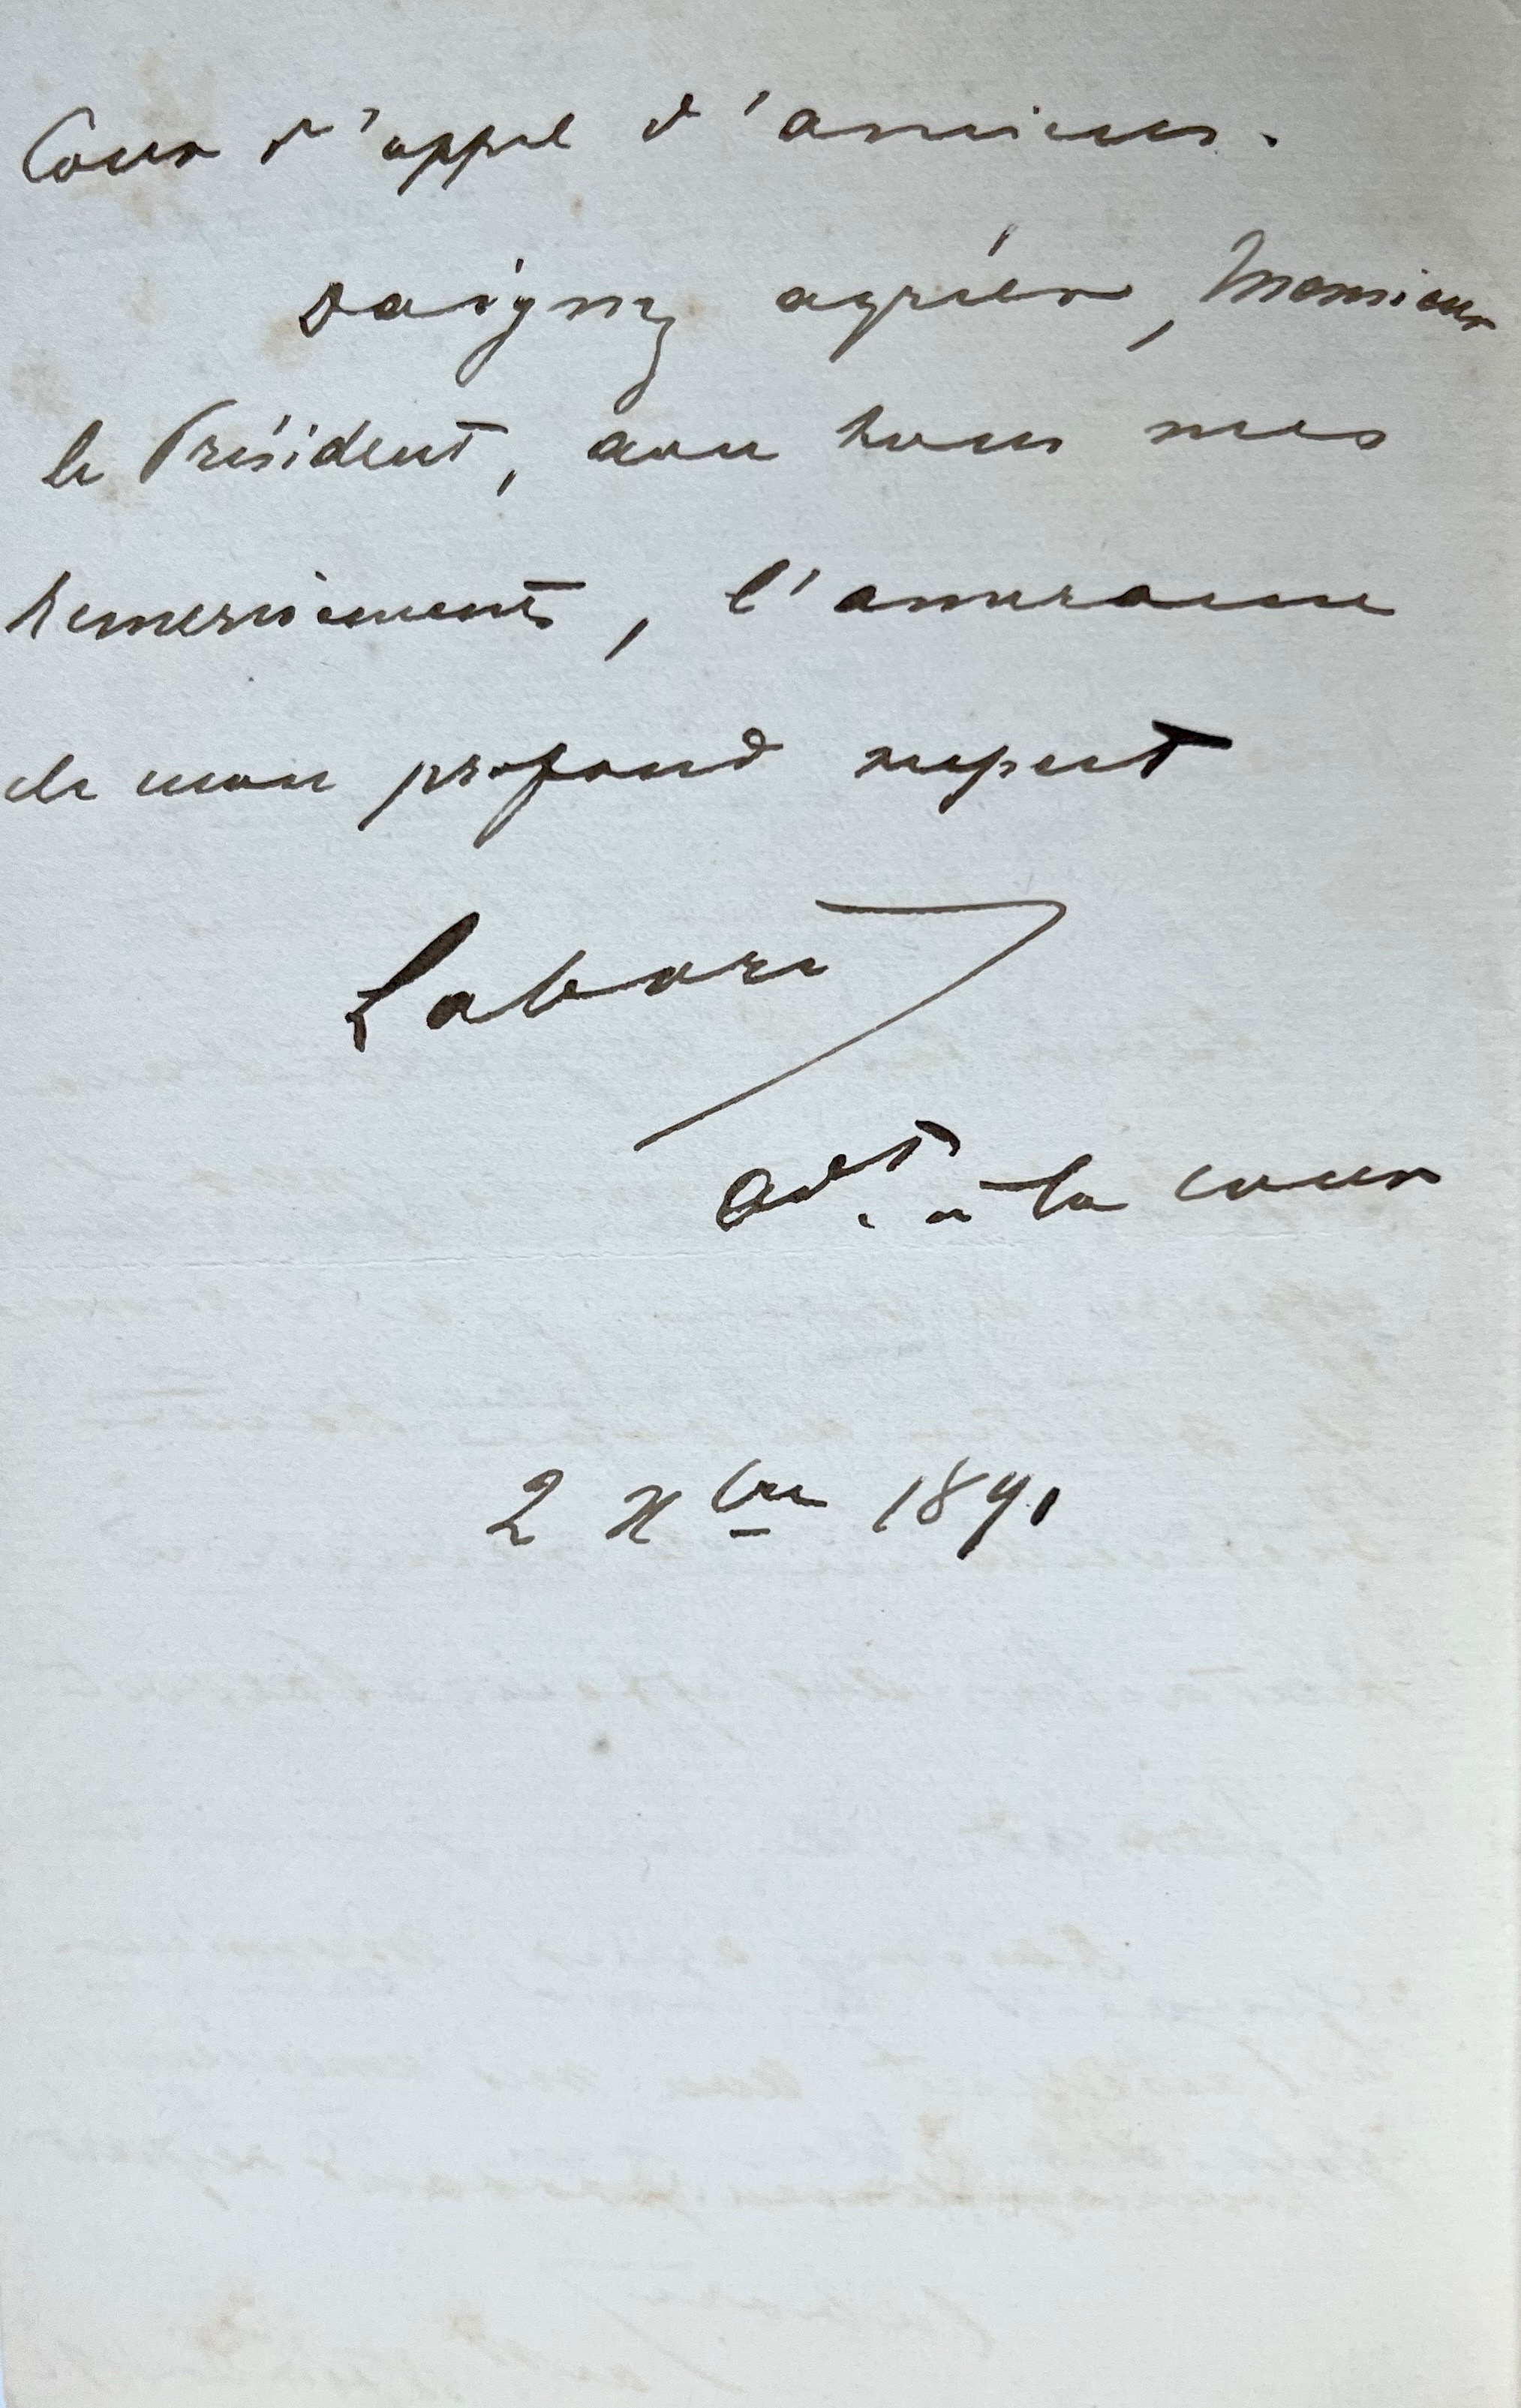 Cour d'appel d'amiens.
Daignez agréer, Monsieur
le Président, avec tous mes
remerciements, l'assurance
de mon profond respect
Labori
avt. à la cour
2 Xbre 1891